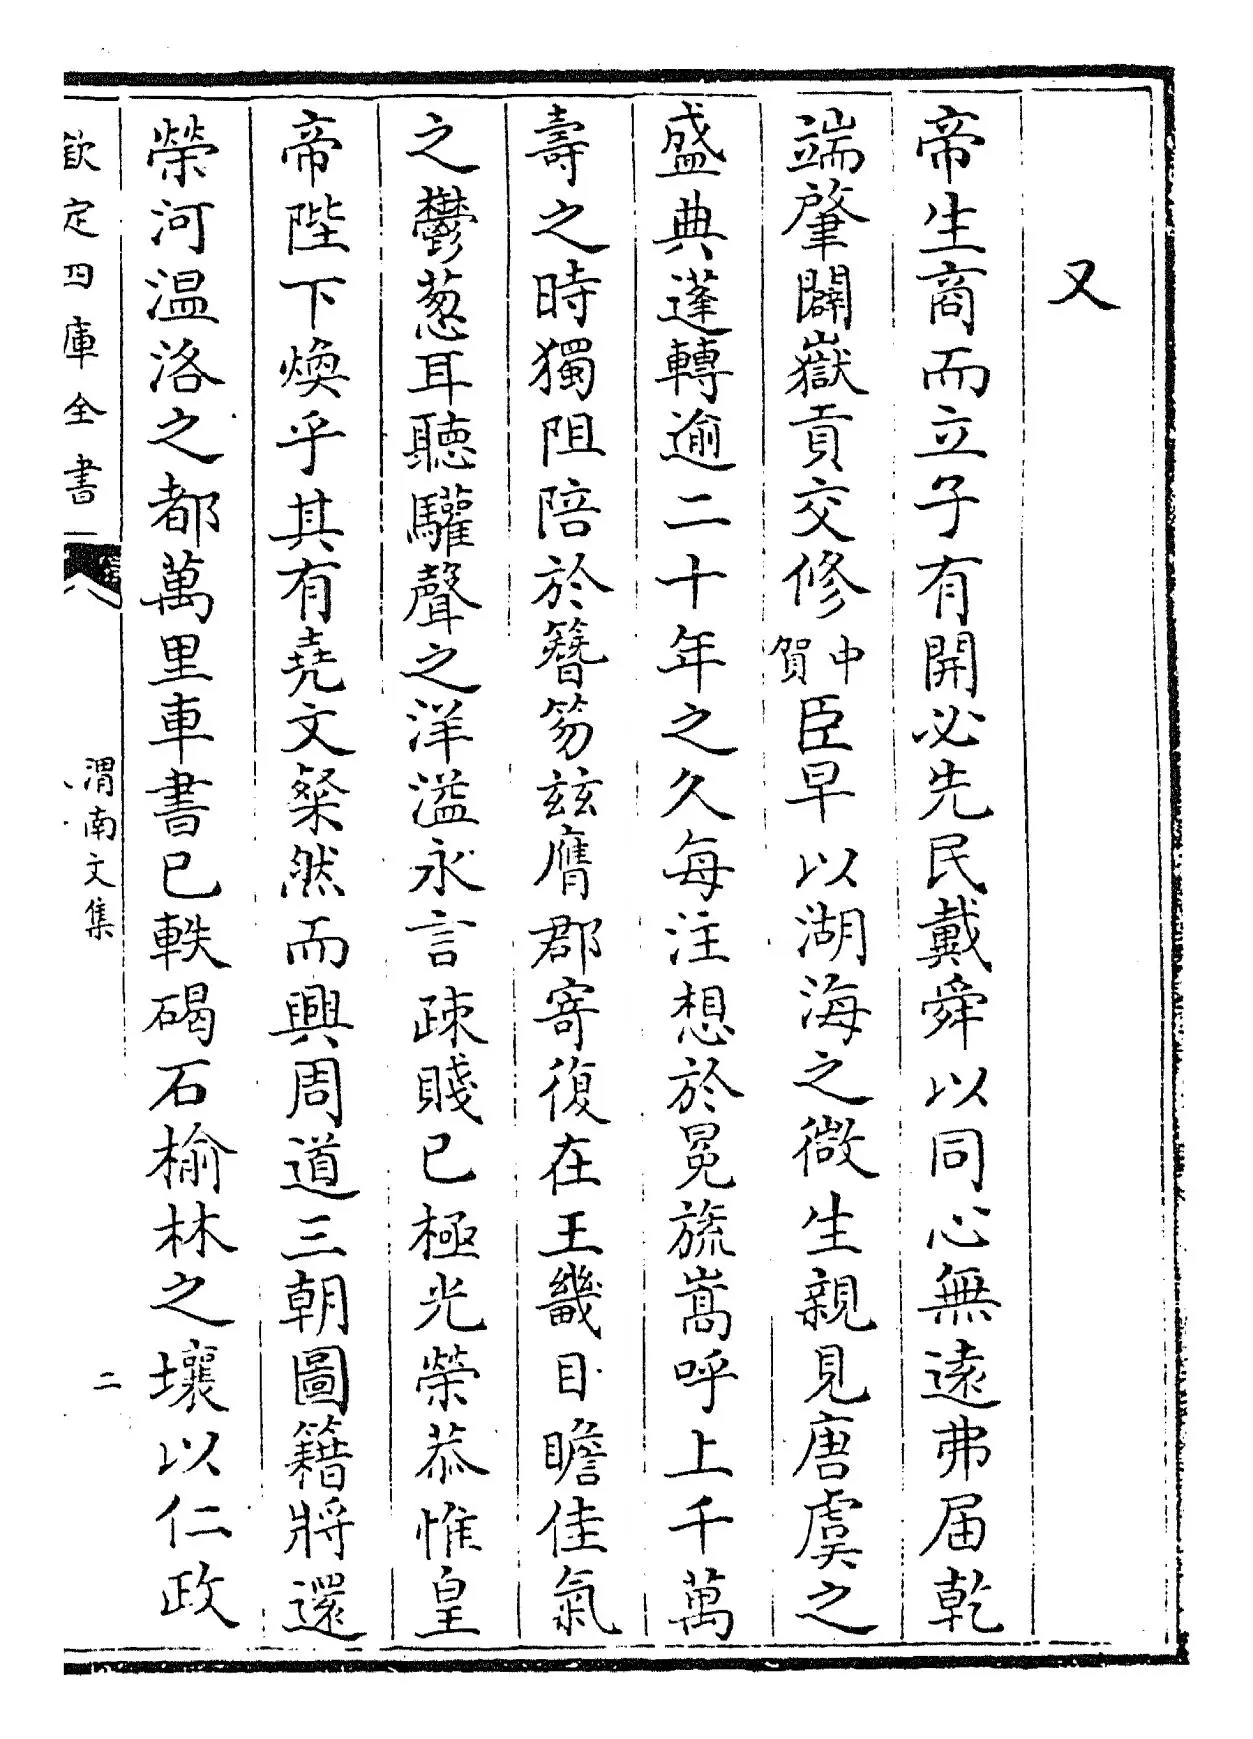 又
帝生商而立子有開必先民戴舜以同心無遠弗届乾
端肇闢嶽貢交修中賀臣早以湖海之微生親見唐虞之
盛典蓬轉逾二十年之久每注想於冕旒嵩呼上千萬
壽之時獨阻陪於簪笏兹膺郡寄復在王畿目瞻佳氣
之鬱葱耳聽驩聲之洋溢永言疎賤已極光榮恭惟皇
帝陛下煥乎其有堯文粲然而興周道三朝圖籍將還
榮河温洛之都萬里車書已軼碣石榆林之壤以仁政
欽定四庫全書
渭南文集
二